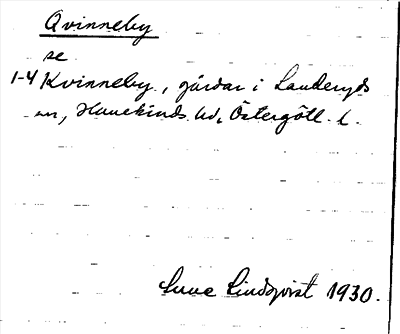 Qvinneby
se
1-4 Kvinneby, gårdar i Landeryds
sn, Hanekinds hd, Östergötl. l.
Sune Lindqvist 1930.